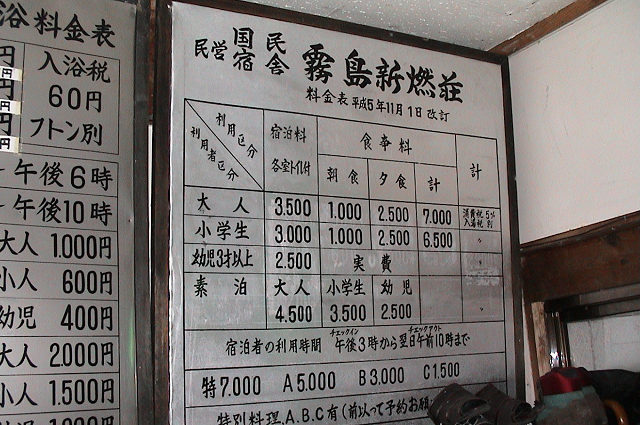 浴料金表
円 入浴税
円 60円
円 フトン別
午後6時
午後10時
大人 1.000円
小人 600円
幼児 400円
大人 2.000円
小人 1.500円
民営 国民宿舎 霧島新燃荘
料金表 平成5年11月1日改訂
利用区分
利用者区分
宿泊料 各室トイレ付
食事料
朝食 夕食 計
計
大人 3.500 1.000 2.500 7.000 消費税5%入湯税別
小学生 3.000 1.000 2.500 6.500 〃
幼児3才以上 2.500 実費 〃
素泊 大人 小学生 幼児
4.500 3.500 2.500 〃
チェックイン チェックアウト
宿泊者の利用時間 午後3時から翌日午前10時まで
特7.000 A5.000 B3.000 C1.500
特別料理.A.B.C有(前以って予約お願